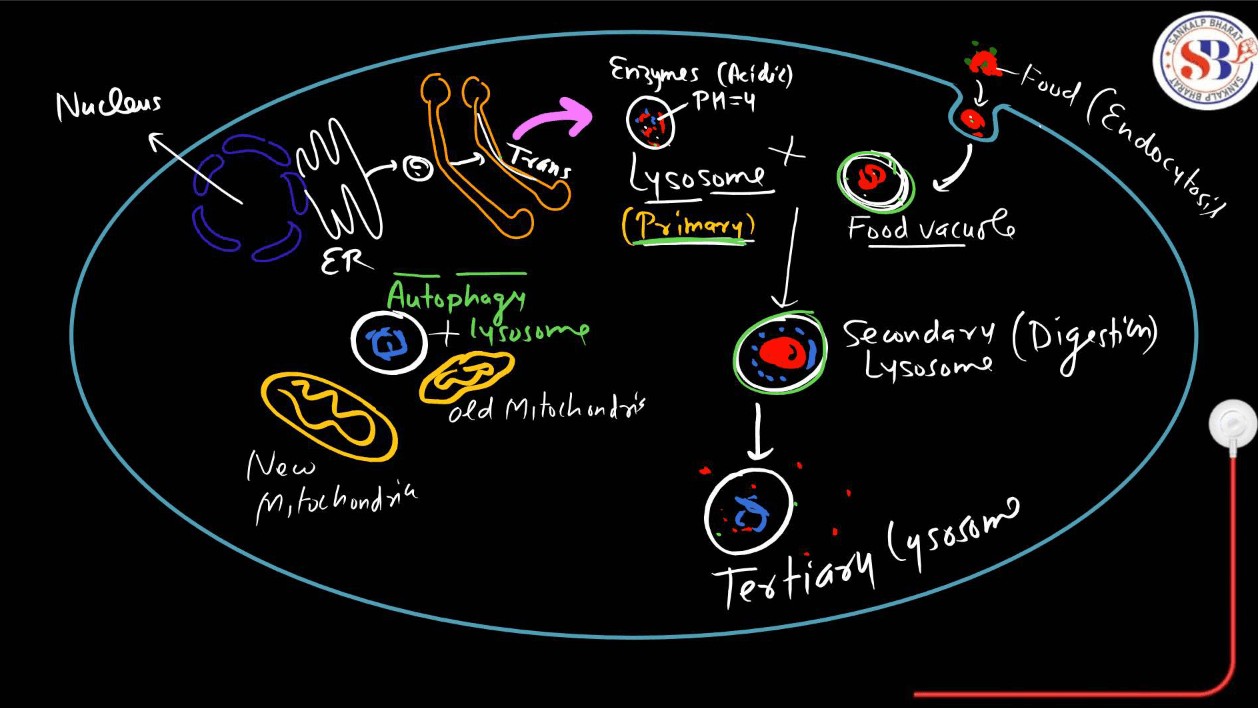 Nucleus
ER
Trans
Enzymes (Acidic)
PH=4
Lysosome
(Primary)
+
Food (Endocytosis)
Food vacuole
Autophagy
+ lysosome
old Mitochondria
New
Mitochondria
Secondary (Digestion)
Lysosome
Tertiary Lysosome
SANKALP BHARAT
SB
SANKALP BHARAT